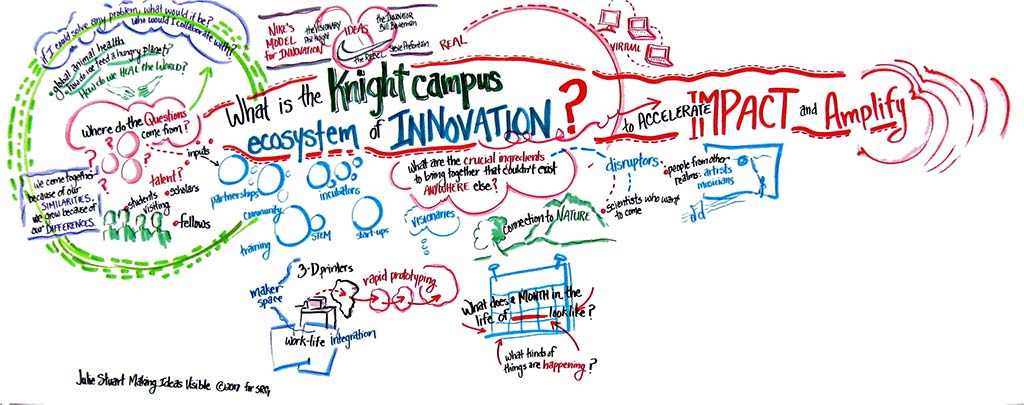 If I could solve any problem, what would it be?
Who would I collaborate with?
global animal health
How do we feed a hungry planet?
How do we HEAL the WORLD?
Where do the Questions
come from?
inputs
talent?
scholars
students
visiting
fellows
We come together
because of our
SIMILARITIES,
we grow because of
our DIFFERENCES.
NIKE'S
MODEL
for INNOVATION
the VISIONARY
Phil Knight
IDEAS
the INNOVATOR
Bill Bowerman
the REBEL
Steve Prefontain
REAL
VIRTUAL
What is the Knight campus
ecosystem of INNOVATION?
to ACCELERATE IMPACT and Amplify
partnerships
incubators
community
STEM
start-ups
training
What are the crucial ingredients
to bring together that couldn't exist
ANYWHERE else?
visionaries
connection to NATURE
disruptors
people from other
realms: artists
musicians
scientists who want
to come
maker
space
3-D printers
rapid prototyping
work-life integration
What does a MONTH in the
life of look like?
what kinds of
things are happening?
Julie Stuart Making Ideas Visible ©2017 for SRG